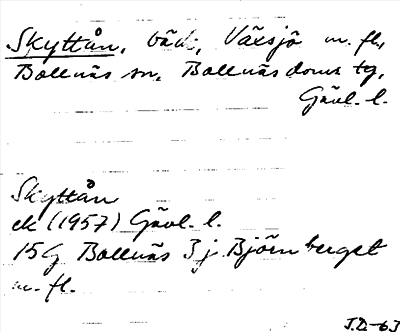 Skyttån, bäck, Växsjö m. fl,
Bollnäs sn. Bollnäs doms tg,
Gävl. l.
Skyttån
ek (1957) Gävl. l.
15G Bollnäs 3j Björnberget
m. fl.
J.D.-63